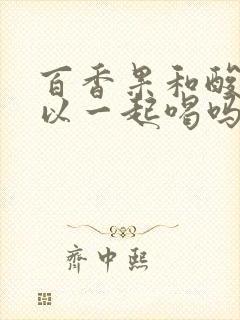 百香果和酸
以一起喝吗
齐中熙